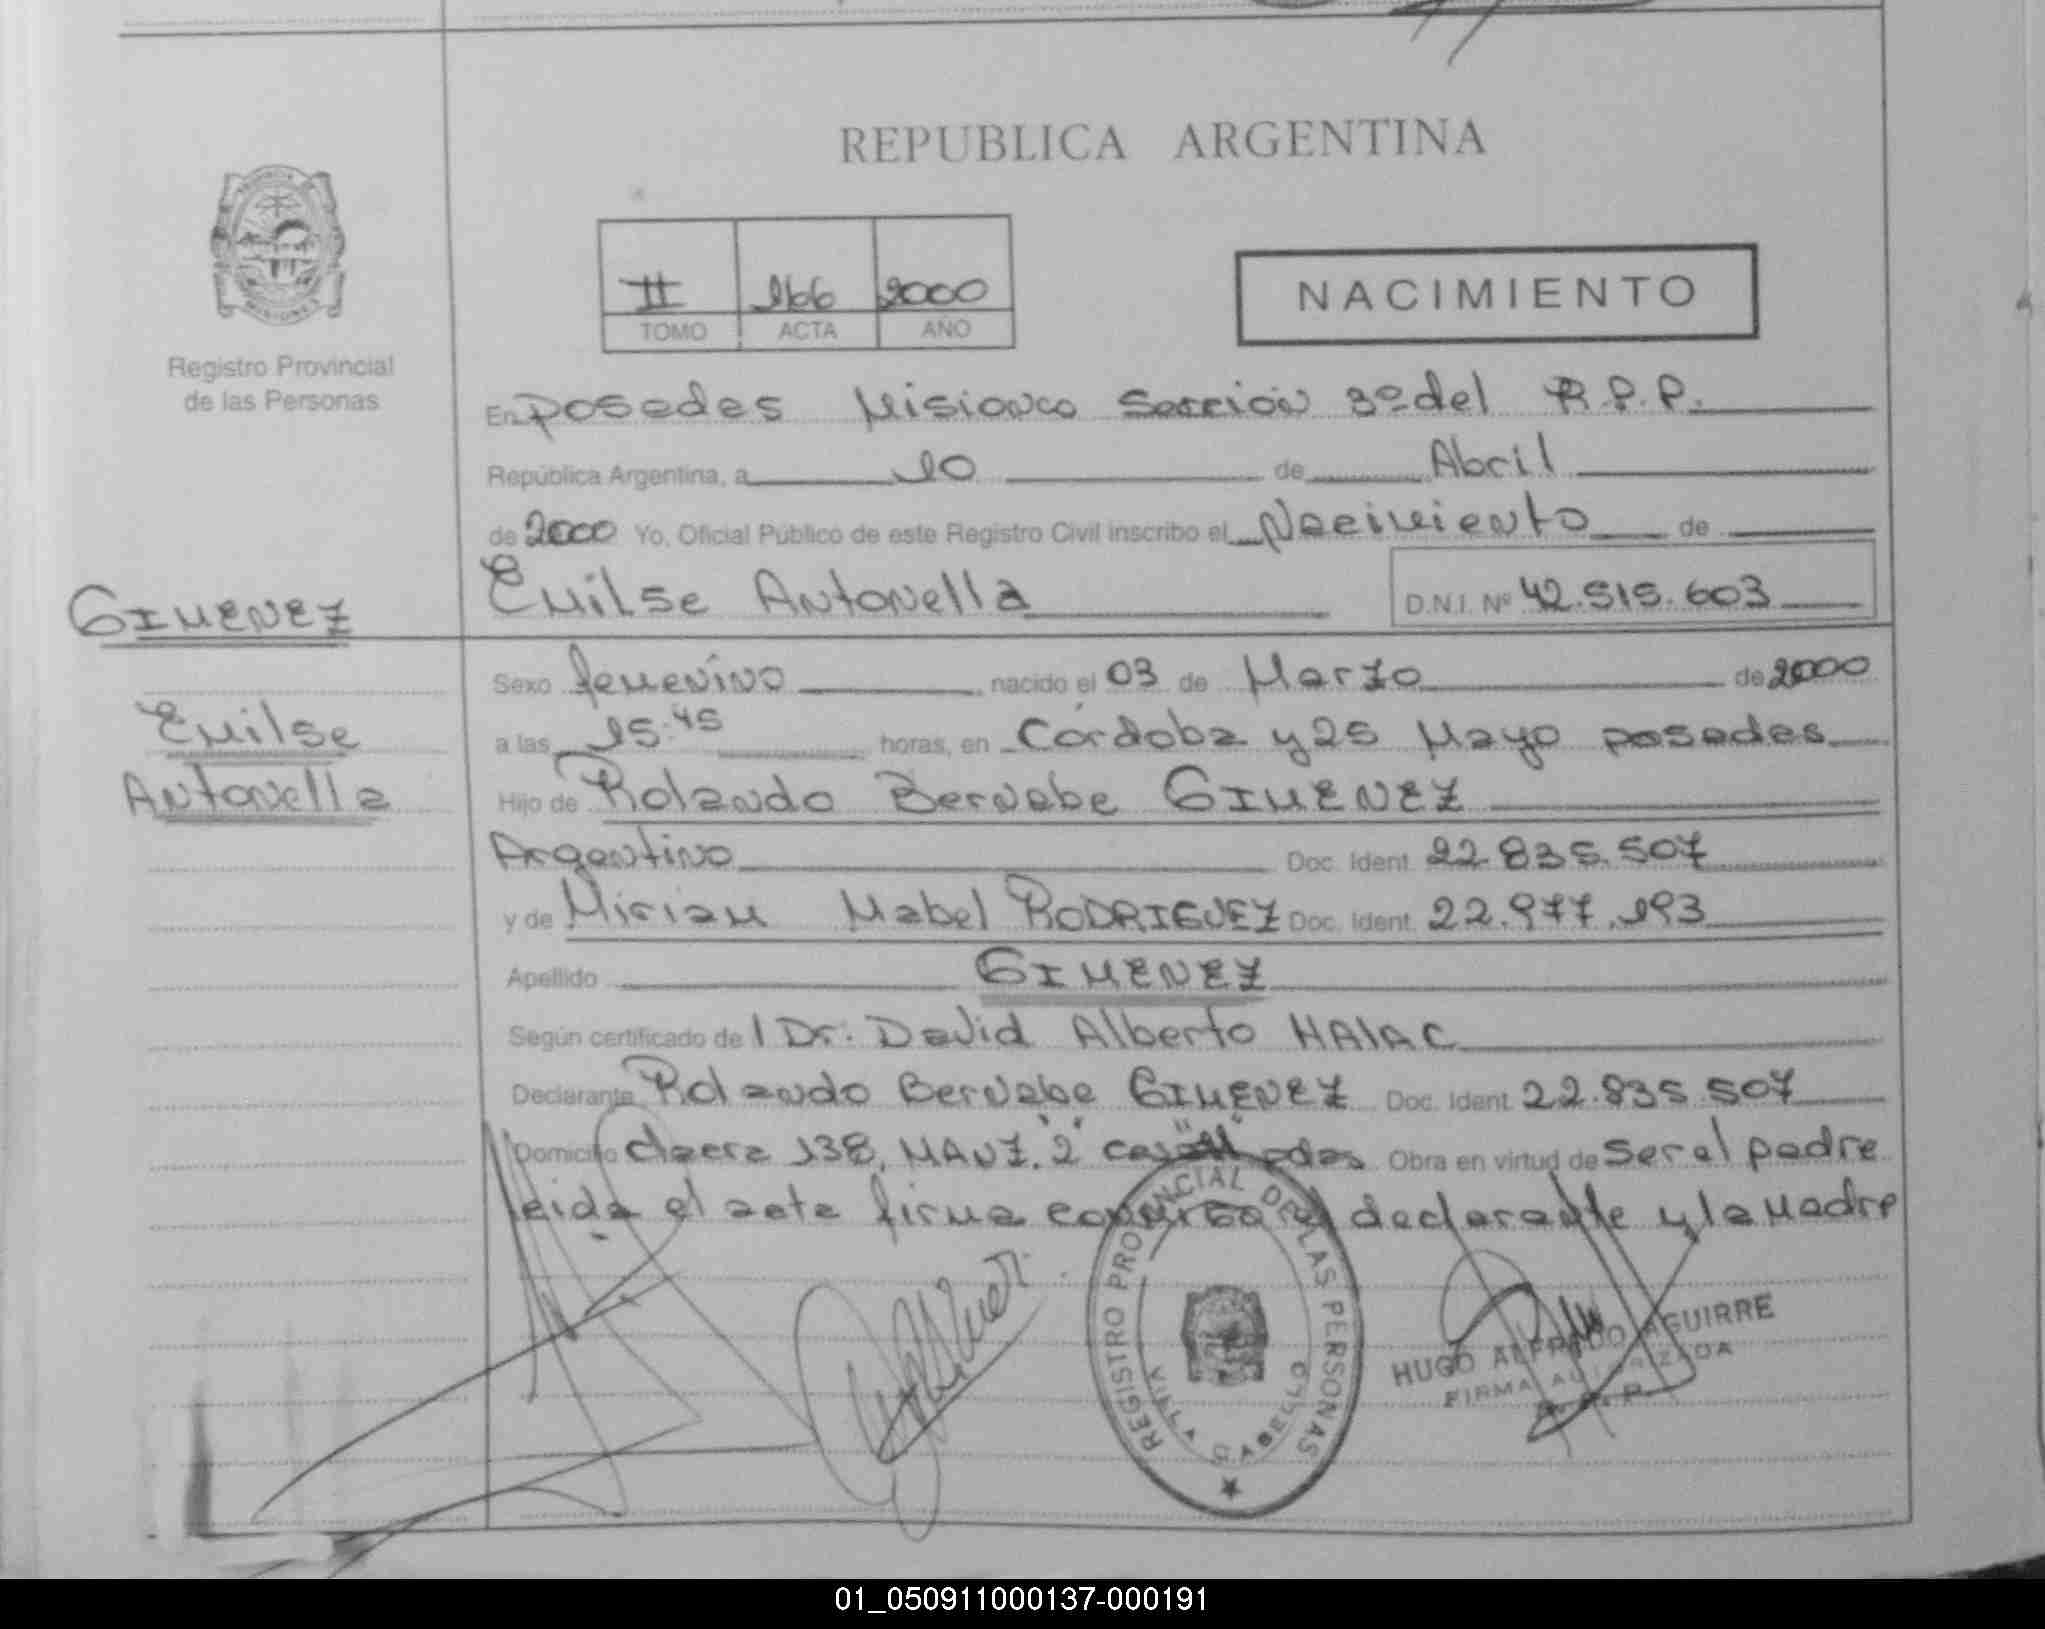 REPUBLICA ARGENTINA
PROVINCIA
MISIONES
Registro Provincial
de las Personas
II 166 2000
TOMO ACTA AÑO
NACIMIENTO
En Posadas Misiones Sección 3º del R.P.P.
República Argentina, a 10 de Abril
de 2000 Yo, Oficial Público de este Registro Civil inscribo el Nacimiento de
Emilse Antonella D.N.I. Nº 42.515.603
GIMENEZ
Emilse
Antonella
Sexo femenino nacido el 03 de Marzo de 2000
a las 15:45 horas, en Córdoba y 25 Mayo posadas
Hijo de Rolando Bernabe GIMENEZ
Argentino Doc. Ident. 22.835.507
y de Miriam Mabel RODRIGUEZ Doc. Ident. 22.977.193
Apellido GIMENEZ
Según certificado de l Dr. David Alberto HALAC
Declarante Rolando Bernabe GIMENEZ Doc. Ident. 22.835.507
Domicilio chacra 138, MANZ. "2" Obra en virtud de Ser el padre
leida el acta firma el declarante y la Madre
REGISTRO PROVINCIAL DE LAS PERSONAS
VILLA CABELLO
HUGO ALFREDO AGUIRRE
FIRMA AUTORIZADA
R. P. P.
01_050911000137-000191